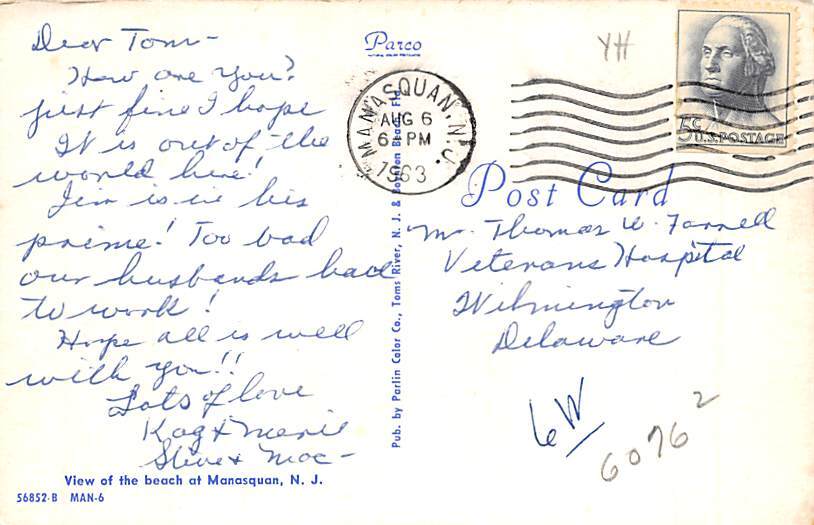 Dear Tom-
How are you?
just fine I hope
It is out of the
world here!
Jim is in his
prime! Too bad
our husbands had
to work!
Hope all is well
with you!!
Lots of love
Kag & Marie
Steve & Mac-
View of the beach at Manasquan, N. J.
56852-B MAN-6
Parco
Pub. by Parlin Color Co., Toms River, N. J. & Boynton Beach, Fla
MANASQUAN, N.J.
AUG 6
6 - PM
1963
YH
5¢
U.S. POSTAGE
Post Card
Mr. Thomas W. Farrell
Veterans Hospital
Wilmington
Delaware
6W
6076 2